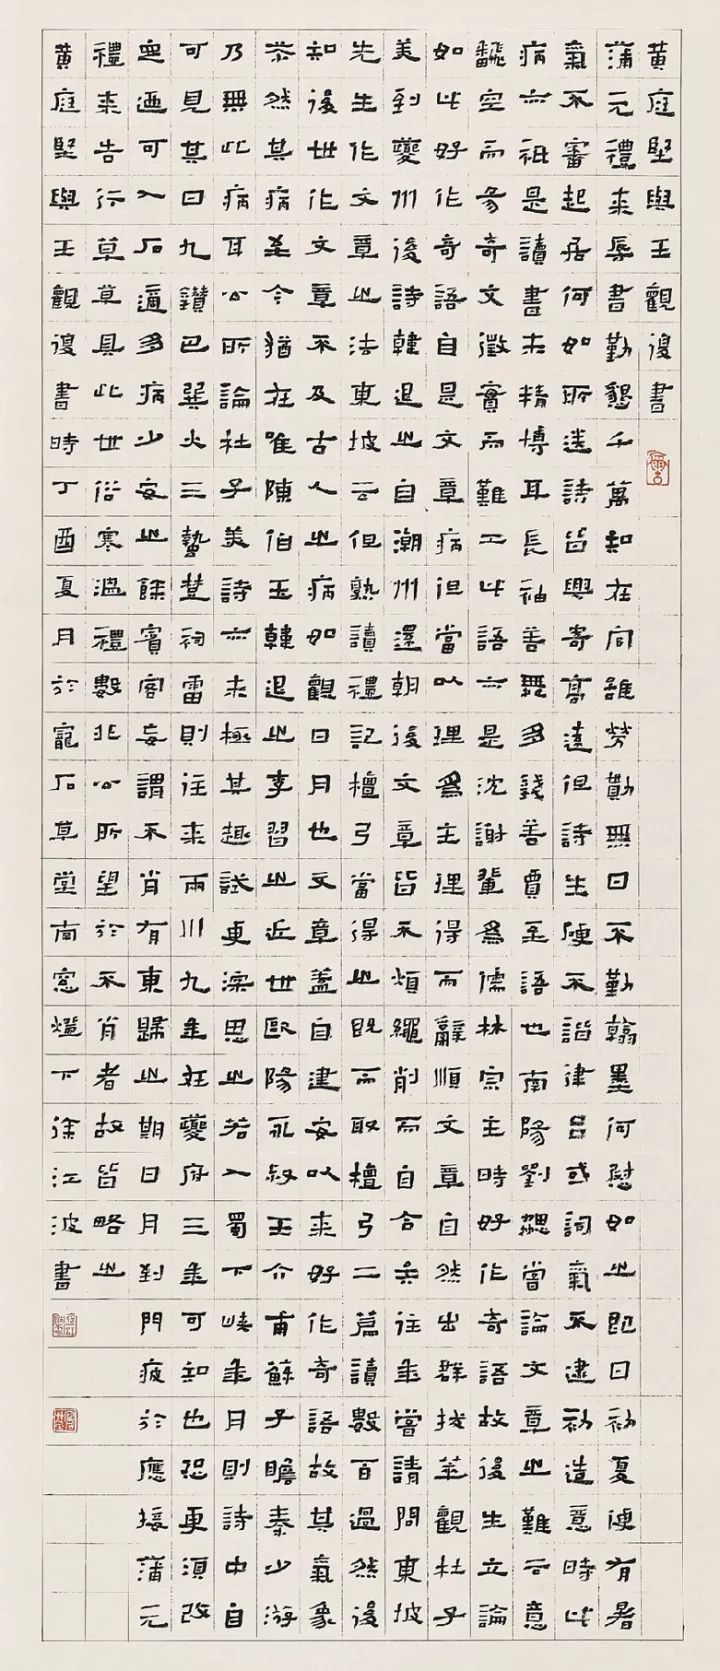 黃庭堅與王觀復書
蒲元禮来辱書勤懇千萬知在向雖勞勩無日不勤翰墨何慰如之即日初夏便有暑
氣不審起居何如所送詩皆興寄高遠但詩生硬不諧律呂或詞氣不逮初造意時此
病亦秖是讀書未精博耳長袖善舞多錢善賈至語也南陽劉勰嘗論文章之難云意
飜空而易奇文徵實而難工此語亦是沈謝輩爲儒林宗主時好作奇語故後生立論
如此好作奇語自是文章病但當以理爲主理得而辭順文章自然出群拔萃觀杜子
美到夔州後詩韓退之自潮州還朝後文章皆不煩繩削而自合矣往年嘗請問東坡
先生作文章之法東坡云但熟讀禮記檀弓當得之既而取檀弓二篇讀數百過然後
知後世作文章不及古人之病如觀日月也文章蓋自建安以来好作奇語故其氣象
苶然其病至今猶在唯陳伯玉韓退之李習之近世歐陽永叔王介甫蘇子瞻秦少游
乃無此病耳公所論杜子美詩亦未極其趣試更深思之若入蜀下峽年月則詩中自
可見其曰九鑽巴巽火三蟄楚祠雷則往来兩川九年在夔府三年可知也恐更須改
定迺可入石適多病少安之餘賓客妄謂不肖有東歸之期日月到門疲於應接蒲元
禮来告行草草具此世俗寒溫禮數非公所望於不肖者故皆略之
黃庭堅與王觀復書時丁酉夏月於寵石草堂南窓燈下徐江波書